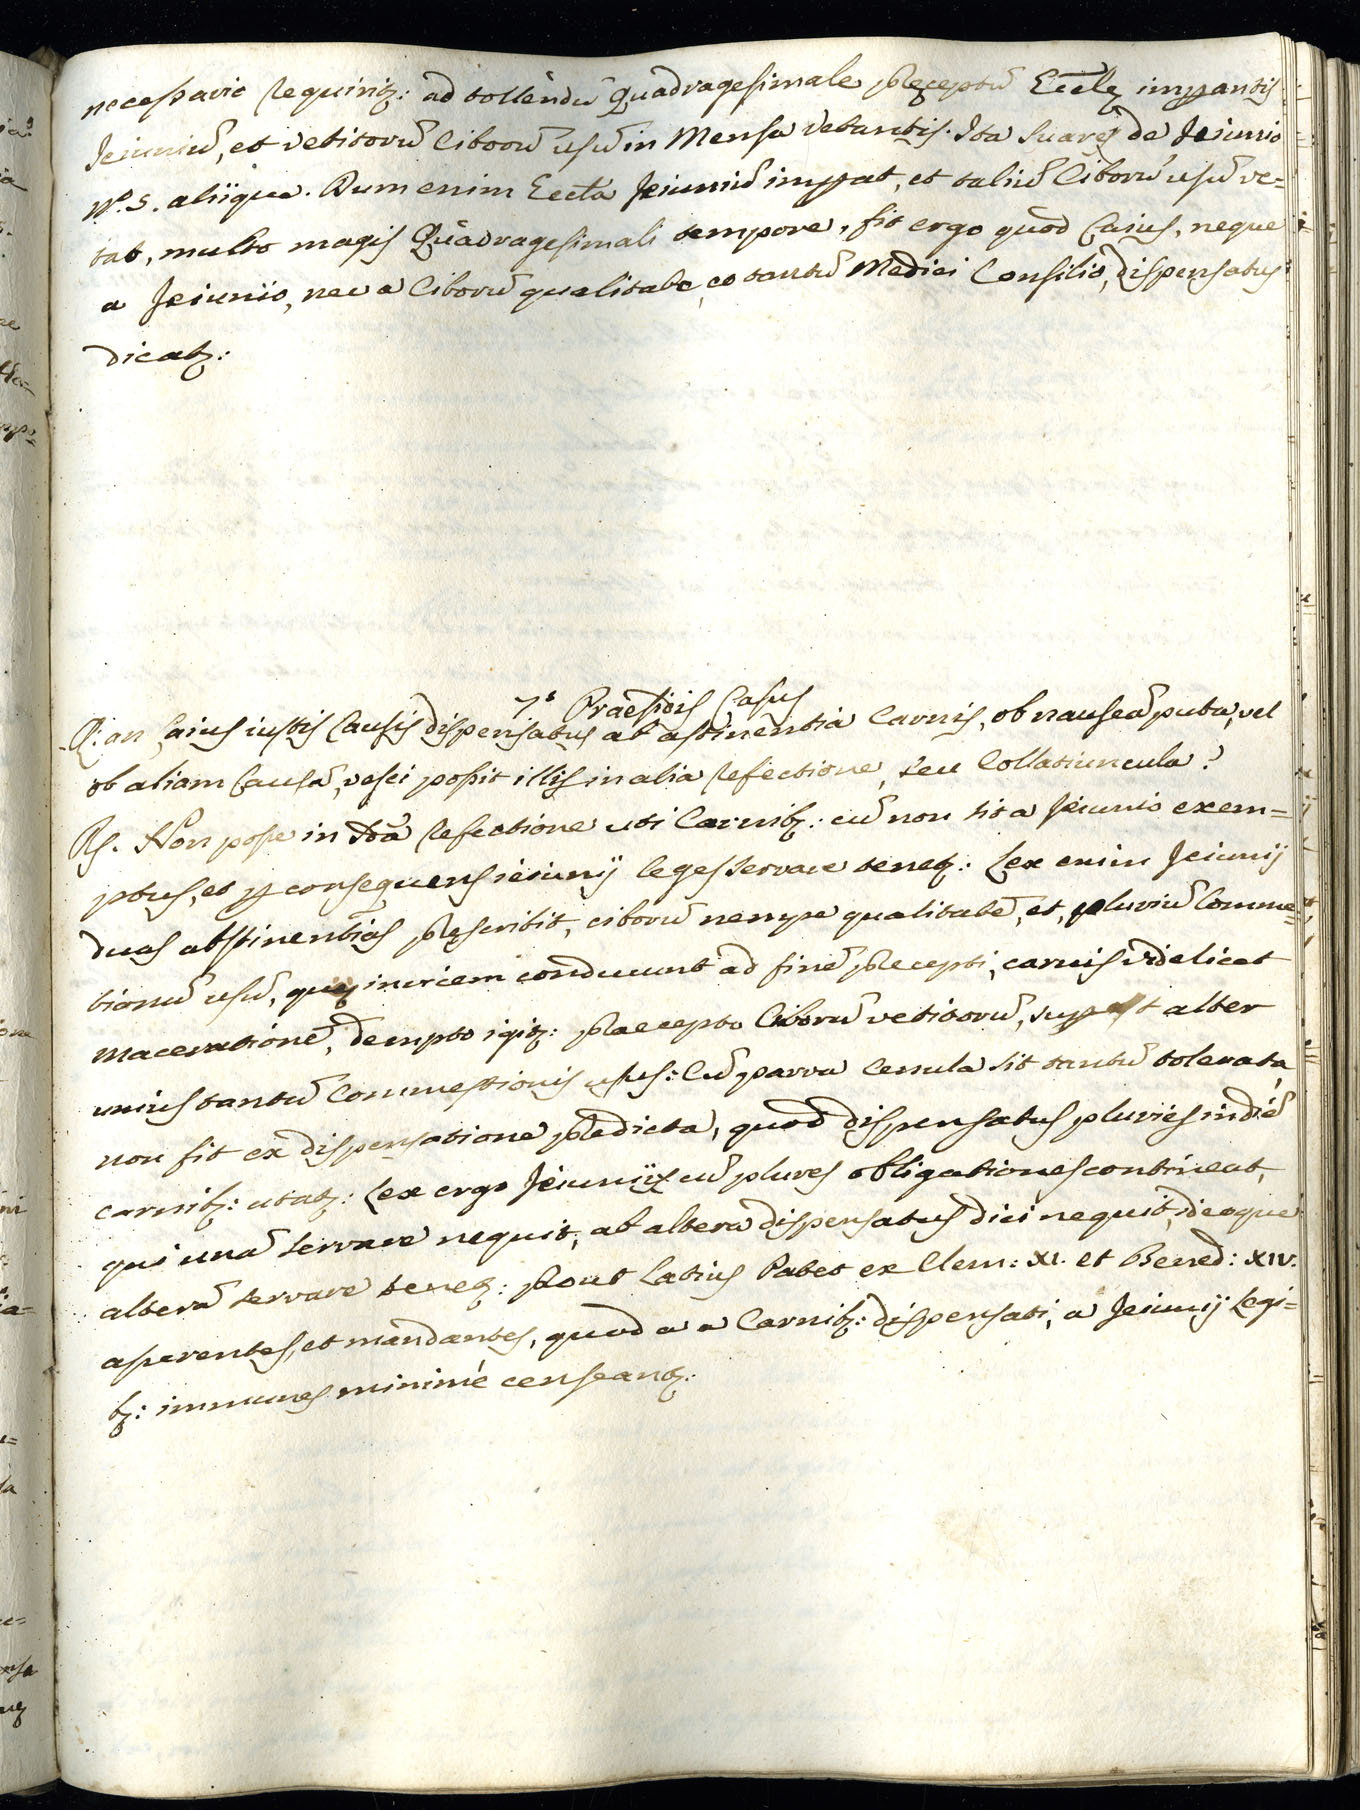 necessario requiritz: ad tollendũ Quadragesimale pręceptũ Eccłę imperantis
Jeiuniũ, et vetitorũ Ciborũ usũ in Mensa vetantis. Ita Suarez de Jeiunio
N.º 5. aliique. Dum enim Eccła Jeiuniũ imperat, et taliũ Ciborũ usũ ve=
tat, multo magis Quadragesimali tempore, fit ergo quòd Caius, neque
a Jeiunio, nec a Ciborũ qualitate, eo tantũ Medici Consilio, dispensatus
dicatz:
7s Praesidis Casus
Q: an Caius iustis Causis dispensatus ab astinentia Carnis, ob nauseã puta, vel
ob aliam Causã, vesci possit illis in alia refectione, seu Collatiuncula?
R. Non posse in dã refectione uti Carnibz: cũ non sit a Jeiunio exem=
ptus, et p consequens ieiunij leges servare tenetz: Lex enim Jeiunij
duas abstinentias pręscribit, ciborũ nempe qualitatẽ, et pluriũ Comme=
tionũ usũ, quę invicem conducunt ad finẽ pręcepti, carnis videlicet
macerationẽ, dempto igitz: praecepto Ciborũ vetitorũ, superest alter
unius tantũ Commestionis usus: Cũ parva Cenula sit tantũ tolerata,
non fit ex dispensatione prędicta, quod dispensatus pluries in diẽ
carnibz: utatz: Lex ergo Jeiunij cũ plures obligationes contineat,
qui unã servare nequit, ab alterã dispensatus dici nequit, ideoque
alterã servare tenetz: prout Latius Patet ex Clem: XI. et Bened: XIV.
asserentes, et mandantes, quod a a Carnibz: dispensati, a Jeiunij Legi=
bz: immunes minimè censeantz: